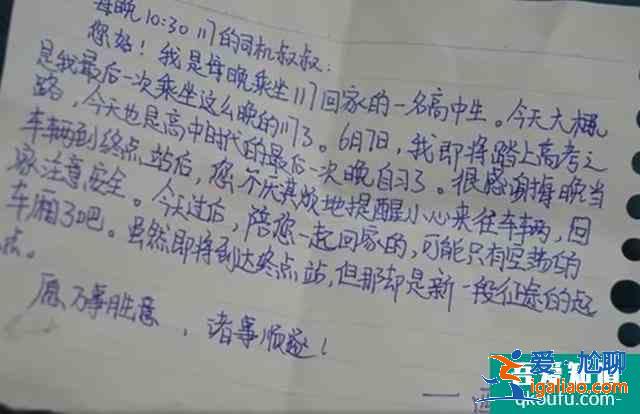 每晚10:30 117的司机叔叔：
您好！我是每晚乘坐117回家的一名高中生。今天大概
是我最后一次乘坐这么晚的117了。6月7日，我即将踏上高考之
路，今天也是高中时代的最后一次晚自习了。很感谢每晚当
车辆到终点站后，您不厌其烦地提醒小心来往车辆，回
家注意安全。今天过后，陪您一起回家的，可能只有空荡的
车厢了吧。虽然即将到达终点站，但那却是新一段征途的起
点。
愿万事胜意，诸事顺遂！
爱尬聊
jigaliao.com
qk8ufu.com